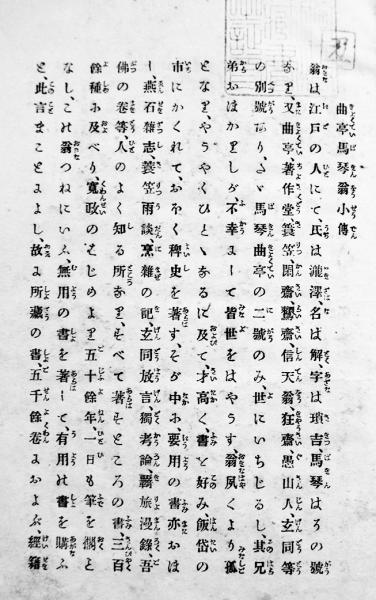 曲亭馬琴翁小傳
翁は江戸の人にて、氏は瀧澤名は解、字は瑣吉馬琴はその號
なり、又曲亭、著作堂、蓑笠、閑齋、鷖齋、信天翁、狂齋、愚山人、玄同等
の別號あり、たゞ馬琴曲亭の二號のみ、世にいちじるし、其兄
弟おほかりしが、不幸にして皆世をはやうす翁夙くより孤
となり、やうやくひとゝなるに及て、才高く、書を好み、飯岱の
市にかくれて、おほく稗史を著す、そが中に要用の書亦おほ
し、燕石雜志蓑笠雨談、烹雜の記玄同放言、獨考論、羇旅漫錄、吾
佛の卷等、人のよく知る所なり、すべて著すところの書、三百
餘種に及べり、寬政のはじめより五十餘年、一日も筆を擱こと
なし、この翁つねにいふ、無用の書を著して、有用の書を購ふ
と、此言まことによし故に所藏の書、五千餘卷におよぶ、經籍